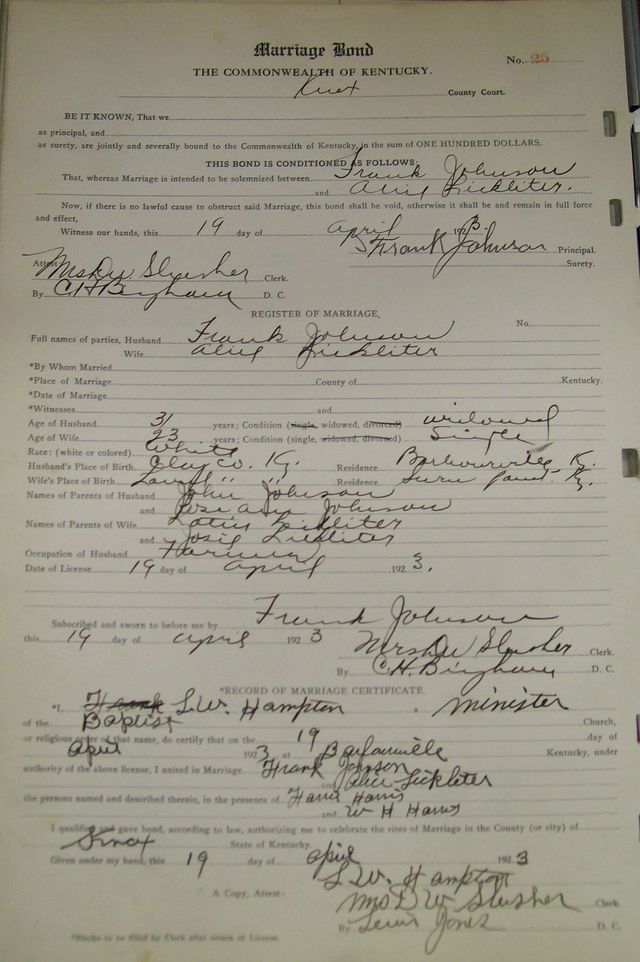 Marriage Bond
No. 25
THE COMMONWEALTH OF KENTUCKY.
Knox County Court.
BE IT KNOWN, That we
as principal, and
as surety, are jointly and severally bound to the Commonwealth of Kentucky, in the sum of ONE HUNDRED DOLLARS.
THIS BOND IS CONDITIONED AS FOLLOWS:
That, whereas Marriage is intended to be solemnized between Frank Johnson
and Alice Lickliter.
Now, if there is no lawful cause to obstruct said Marriage, this bond shall be void, otherwise it shall be and remain in full force
and effect,
Witness our hands, this 19 day of April 1923.
Frank Johnson Principal.
Surety.
Attest Mrs D W Slusher Clerk.
By C. H. Bingham D. C.
REGISTER OF MARRIAGE,
No.
Full names of parties, Husband Frank Johnson
Wife Alice Lickliter
*By Whom Married
*Place of Marriage County of Kentucky.
*Date of Marriage
*Witnesses and
Age of Husband 31 years; Condition (single, widowed, divorced) widowed
Age of Wife 23 years; Condition (single, widowed, divorced) Single
Race: (white or colored) White
Husband's Place of Birth Clay Co. Ky. Residence Barbourville Ky.
Wife's Place of Birth Laurel " " Residence Ky.
Names of Parents of Husband John Johnson
and Johnson
Names of Parents of Wife Lickliter
and Josie Lickliter
Occupation of Husband Farmer
Date of License 19 day of April 1923.
Subscribed and sworn to before me by Frank Johnson
this 19 day of April 1923
Mrs D W Slusher Clerk.
By C. H. Bingham D. C.
*RECORD OF MARRIAGE CERTIFICATE.
*I, Frank L. W. Hampton a minister
of the Baptist Church,
or religious order of that name, do certify that on the 19 day of
April 1923 at Barbourville Kentucky, under
authority of the above license, I united in Marriage Frank Johnson
and Alice Lickliter
the persons named and described therein, in the presence of Harris
and W H Harris
I qualified and gave bond, according to law, authorizing me to celebrate the rites of Marriage in the County (or city) of
Knox State of Kentucky.
Given under my hand, this 19 day of April 1923
L. W. Hampton
A Copy, Attest: Mrs D W Slusher Clerk.
By Lewis Jones D. C.
*Blanks to be filled by Clerk after return of License.